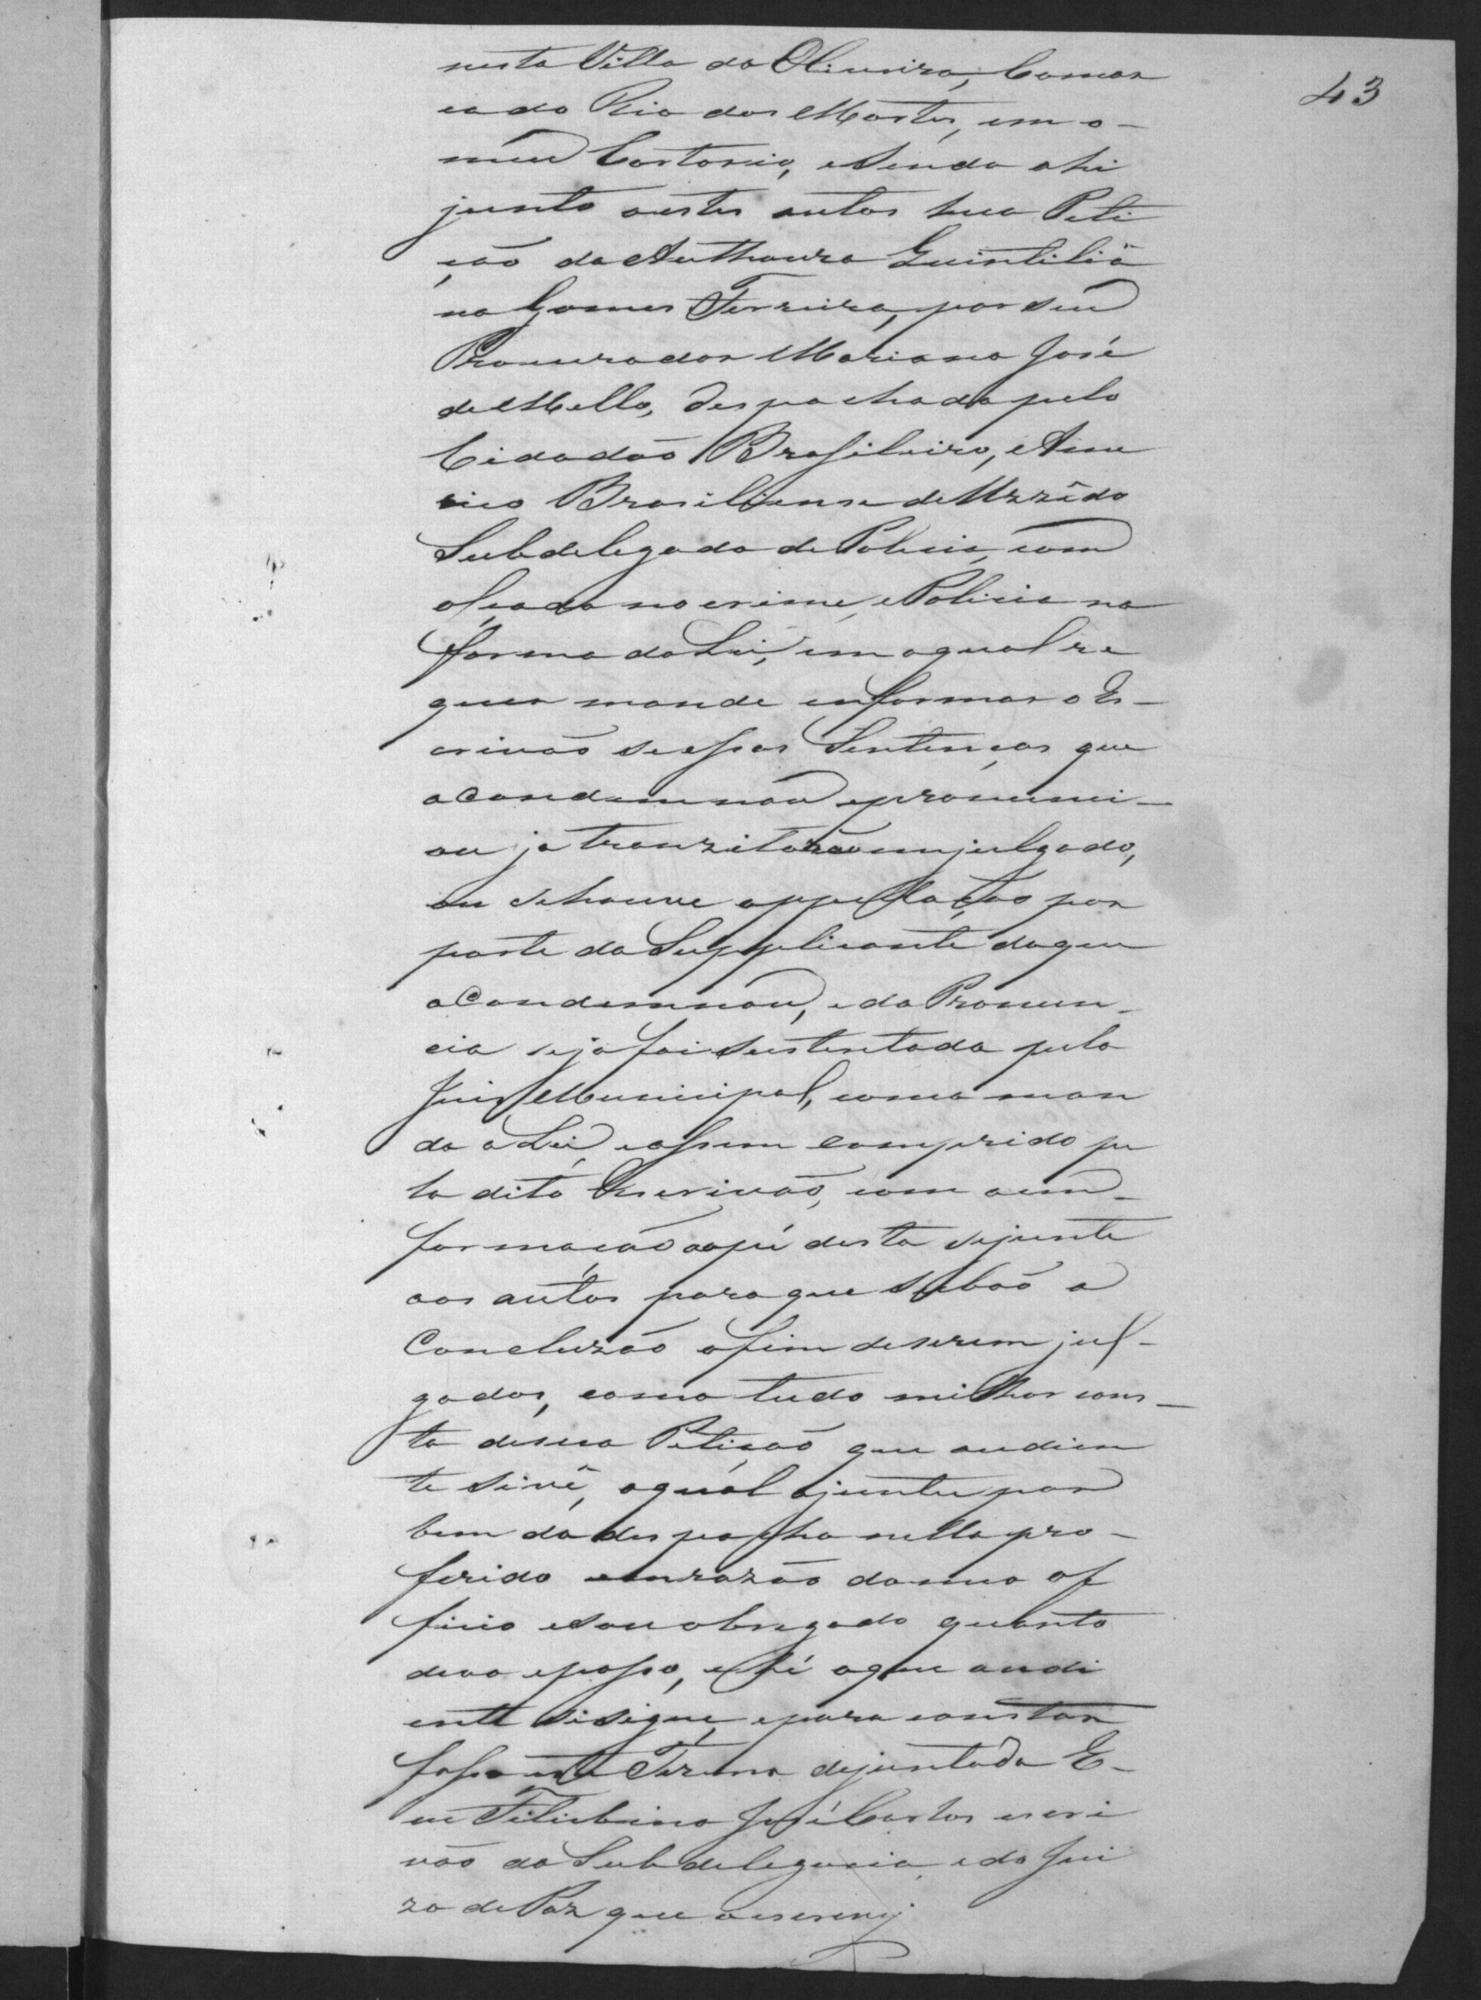 43
nesta Villa da Oliveira, Comar
ca do Rio das Mortes, em o
meu Cartorio, e sendo ahi
junto a estes autos hua Peti
ção da Authoura Quintiliã
na Gomes Ferreira, por seu
Procurador Mariano José
de Mello, despachada pelo
Cidadão Brasileiro, Ame
rico Brasiliense de
Subdelegado de Policia, com
alçada no crime, e Policia na
forma da Lei, em a qual re
quer mande informar o Es-
crivão se essas Sentenças que
a Condemnou e pronunci-
ou ja tranzitarão em julgado,
ou se houve appellação por
parte da Supplicante da que
a Condemnou, e da Pronun-
cia se ja foi sustentada pelo
Juis Municipal, como man
da a Lei, e assim comprido pe
lo dito Escrivão, com a em-
formação ao pé desta se junte
aos autos para que subão a
Concluzão afim de serem jul-
gados, como tudo milhor cons-
ta de sua Petição que audien
te se vê, a qual ajuntei por
bem do despacho nella pro-
ferido em razão do meu of
ficio e sou obrigado quanto
devo e posso, e hé a que audi
ente se segue, e para constar
faço este Termo de juntada E-
eu Felisbino José Carlos escri
vão da Subdelegacia, e do Jui
zo de Paz que a escrevy